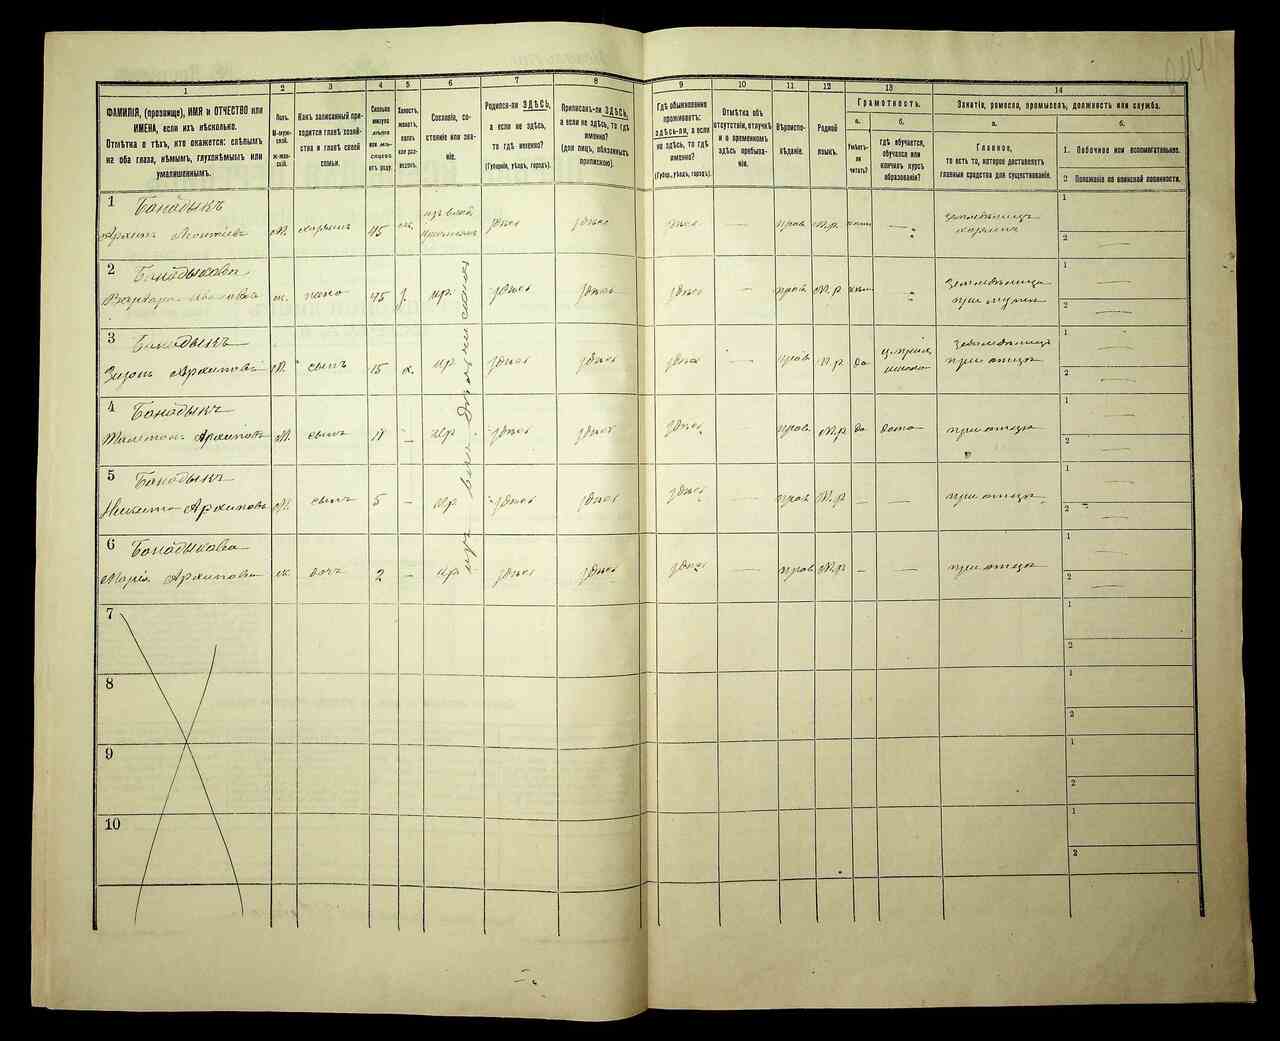 1
2
3
4
5
6
7
8
9
10
11
12
13
14
ФАМИЛІЯ, (прозвище), ИМЯ и ОТЧЕСТВО или
ИМЕНА, если ихъ нѣсколько.
Отмѣтка о тѣхъ, кто окажется: слѣпымъ
на оба глаза, нѣмымъ, глухонѣмымъ или
умалишеннымъ.
Полъ.
М-мужской.
ж-женскій.
Какъ записанный приходится
главѣ хозяйства
и главѣ своей
семьи.
Сколько
минуло
лѣтъ
или мѣсяцевъ
отъ роду.
Холостъ,
женатъ,
вдовъ
или разведенъ.
Сословіе, состояніе
или званіе.
Родился-ли ЗДѢСЬ,
а если не здѣсь,
то гдѣ именно?
(Губернія, уѣздъ, городъ).
Приписанъ-ли ЗДѢСЬ,
а если не здѣсь, то гдѣ
именно?
(для лицъ, обязанныхъ
припиской).
Гдѣ обыкновенно
проживаетъ:
здѣсь-ли, а если
не здѣсь, то гдѣ
именно?
(Губер., уѣздъ, городъ).
Отмѣтка объ
отсутствіи, отлучкѣ
и о временномъ
здѣсь пребываніи.
Вѣроисповѣданіе.
Родной
языкъ.
Грамотность.
а.
Умѣетъ-ли
читать?
б.
гдѣ обучается,
обучался или
кончилъ курсъ
образованія?
Занятія, ремесло, промыселъ, должность или служба.
а.
Главное,
то есть то, которое доставляетъ
главныя средства для существованія.
б.
1. Побочное или вспомогательное.
2 Положеніе по воинской повинности.
1
Банадыкъ
Архипъ
М.
хозяинъ
45
здѣсь
здѣсь
здѣсь
—
прав
М.р
—
хозяинъ
1
2
2
Банадыкова
Варвара
ж.
жена
45
здѣсь
здѣсь
здѣсь
—
прав
М.р
при мужѣ
1
2
3
Банадыкъ
Архиповъ
М.
сынъ
15
х.
здѣсь
здѣсь
здѣсь
—
прав
М.р
да
школа
при отцѣ
1
2
4
Банадыкъ
Архиповъ
М.
сынъ
11
—
здѣсь
здѣсь
здѣсь
—
прав
М.р
да
при отцѣ
1
2
5
Банадыкъ
Никита Архиповъ
М.
сынъ
5
—
здѣсь
здѣсь
здѣсь
—
прав
М.р
—
—
при отцѣ
1
2
6
Банадыкова
Марія Архипова
ж.
дочь
2
—
здѣсь
здѣсь
здѣсь
—
прав
М.р
—
—
при отцѣ
1
2
7
1
2
8
1
2
9
1
2
10
1
2